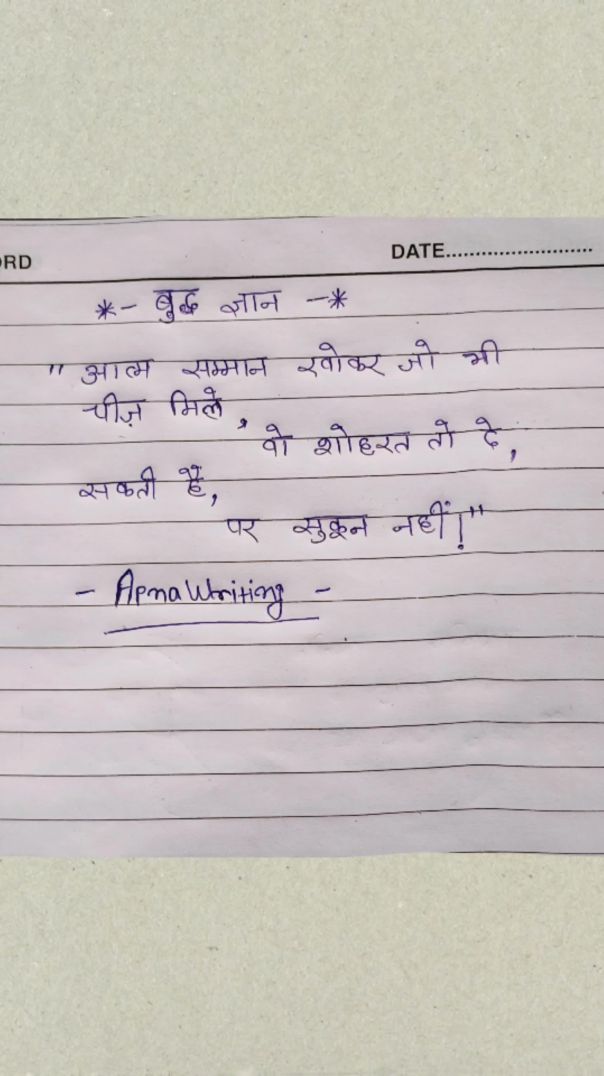 ORD
DATE..........................
*- बुद्ध ज्ञान -*
" आत्म सम्मान खोकर जो भी
चीज़ मिले,
वो शोहरत तो दे,
सकती है,
पर सुकून नहीं!"
- Apna Writing -